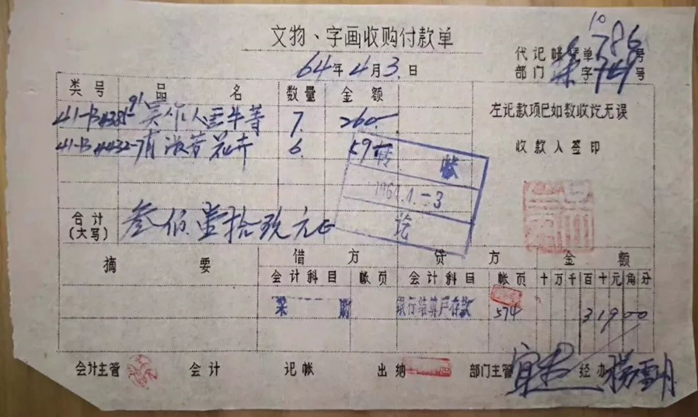 文物、字画收购付款单
64年4月3日
代记帐凭单 10786号
部门 字 749号
类号 品名 数量 金额
吴作人 牛等 7. 260
花卉 6. 59
左记款项已如数收讫无误
收款人签印
转帐
1964.4.-3
讫
合计(大写) 叁佰壹拾玖元正
摘要 借方 贷方 金额
会计科目 帐页 会计科目 帐页 十万千百十元角分
银行结算户存款 574 31900
会计主管 会计 记帐 出纳 部门主管 经办